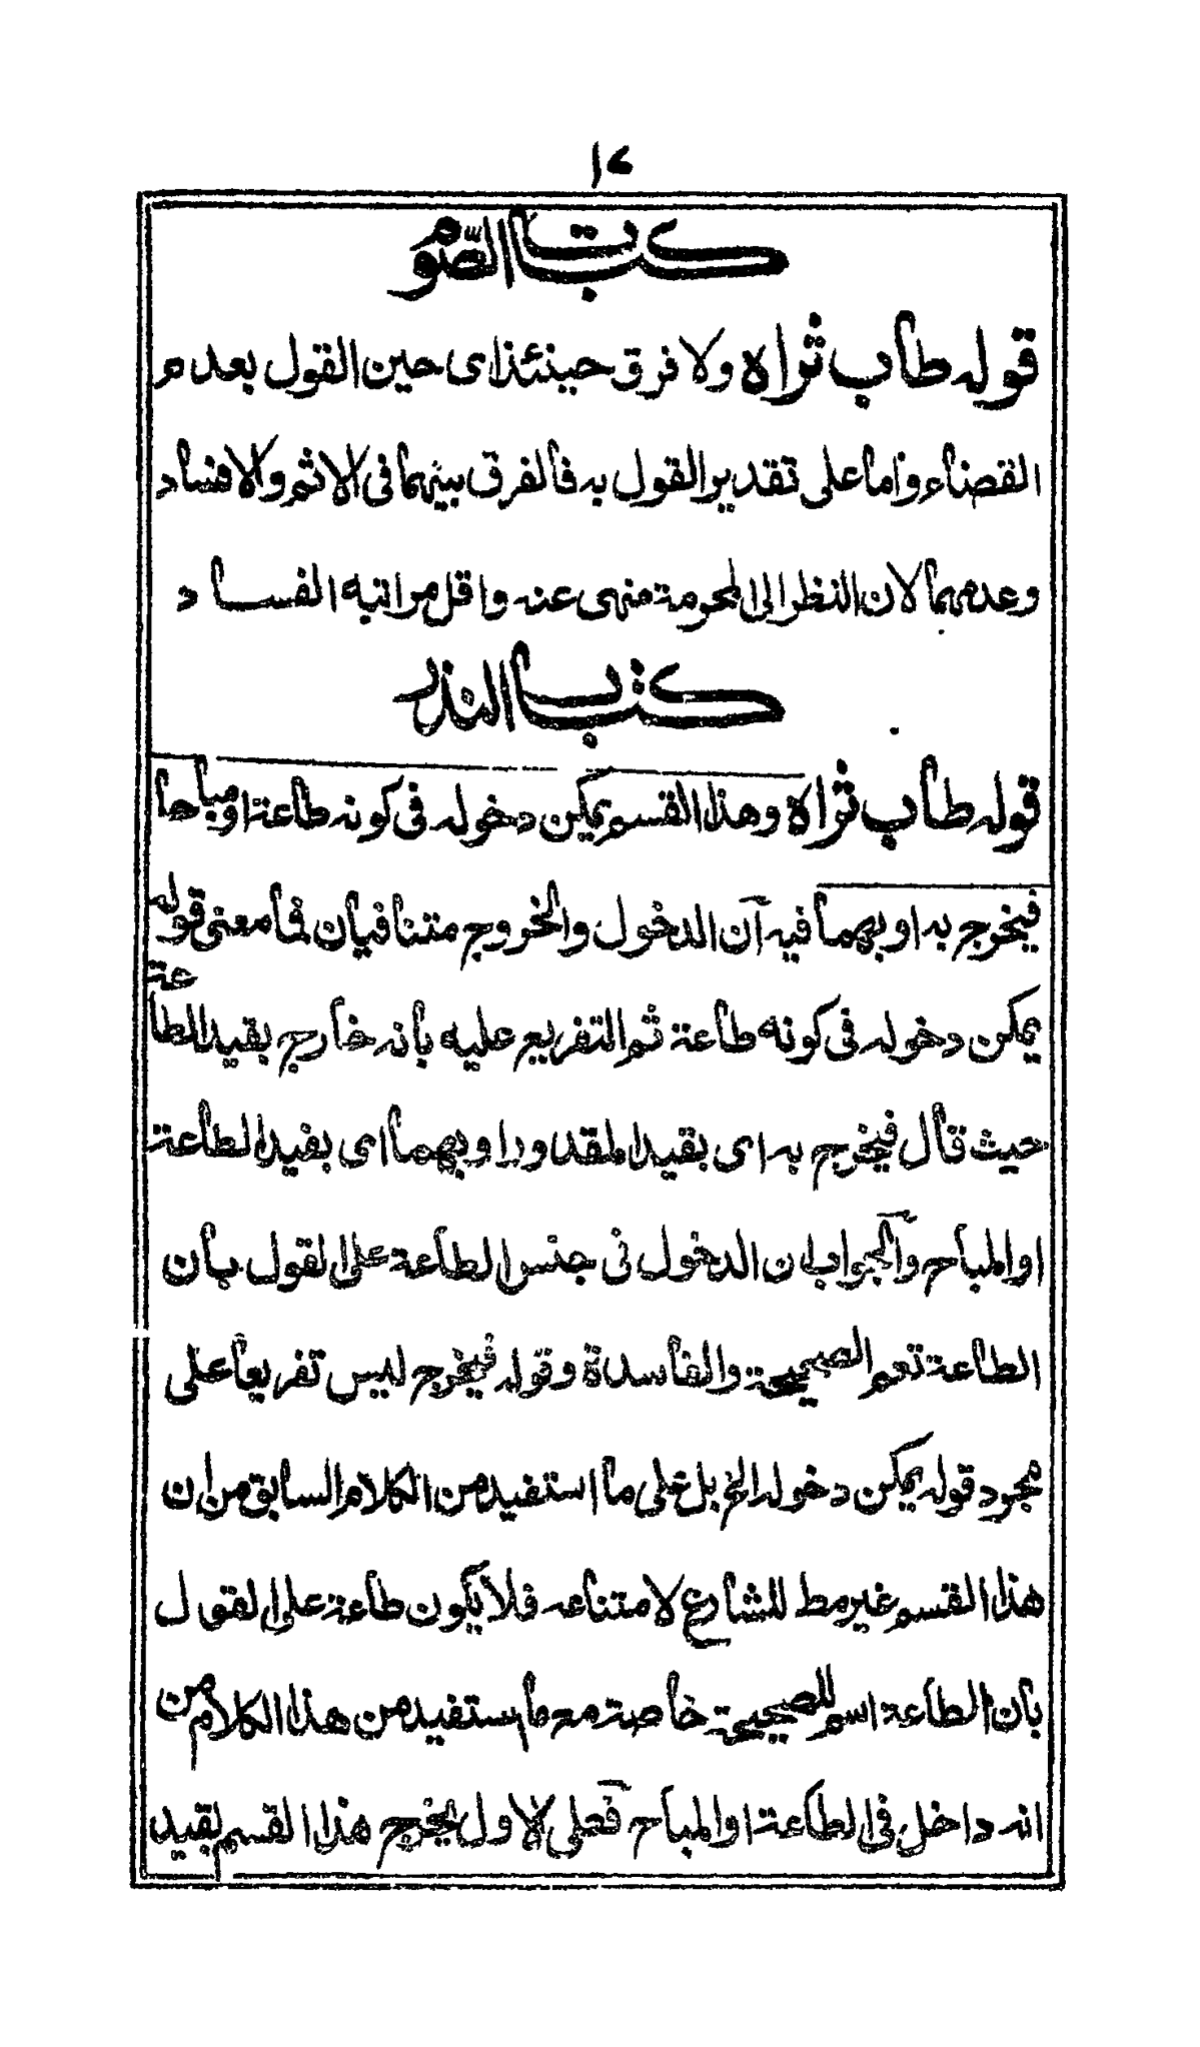 ١٧
كتاب الصّوم
قوله طاب ثراه ولا فرق حينئذ اى حين القول بعدم
القضاء واما على تقدير القول به فالفرق بينهما فى الاثم والافساد
وعدمهما لان النظر الى المحرمة منهى عنه واقل مراتبه الفساد
كتاب النذر
قوله طاب ثراه وهذا القسم يمكن دخوله فى كونه طاعة او مباحا
فيخرج به او بهما فيه آن الدخول والخروج متنافيان فما معنى قوله
يمكن دخوله فى كونه طاعة ثم التفريع عليه بانه خارج بقيد الطاعة
حيث قال فيخرج به اى بقيد المقدور او بهما اى بقيد الطاعة
او المباح والجواب ان الدخول فى جنس الطاعة على القول بان
الطاعة تعم الصحيحة والفاسدة وقوله فيخرج ليس تفريعا على
مجرد قوله يمكن دخوله الخ بل على ما استفيد من الكلام السابق من ان
هذا القسم غير مط للشارع لامتناعه فلا يكون طاعة على القول
بان الطاعة اسم للصحيحة خاصة مع ما يستفيد من هذا الكلام من
انه داخل فى الطاعة او المباح فعلى الاول يخرج هذا القسم بقيد